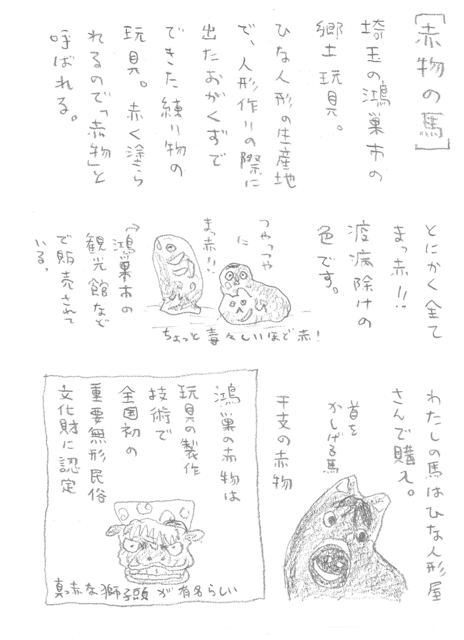 ［赤物の馬］
埼玉の鴻巣市の
郷土玩具。
ひな人形の生産地
で、人形作りの際に
出たおがくずで
できた練り物の
玩具。赤く塗ら
れるので「赤物」と
呼ばれる。
とにかく全て
まっ赤!!
疫病除けの
色です。
つやっつや
に
まっ赤!!
ちょっと毒々しいほど赤!
「鴻巣市の
観光館など
で販売されて
いる。
わたしの馬はひな人形屋
さんで購入。
首を
かしげる馬
干支の赤物
鴻巣の赤物は
玩具の製作
技術で
全国初の
重要無形民俗
文化財に認定
真っ赤な獅子頭が有名らしい